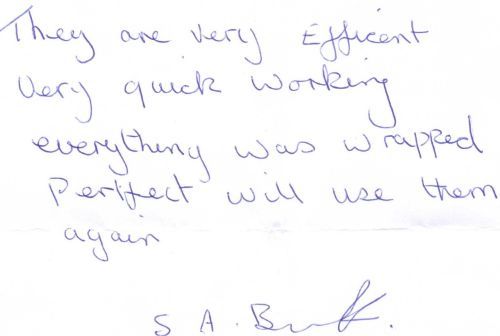 They are very Efficent
Very quick working
everything was wrapped
Perffect will use them
again
S A. B